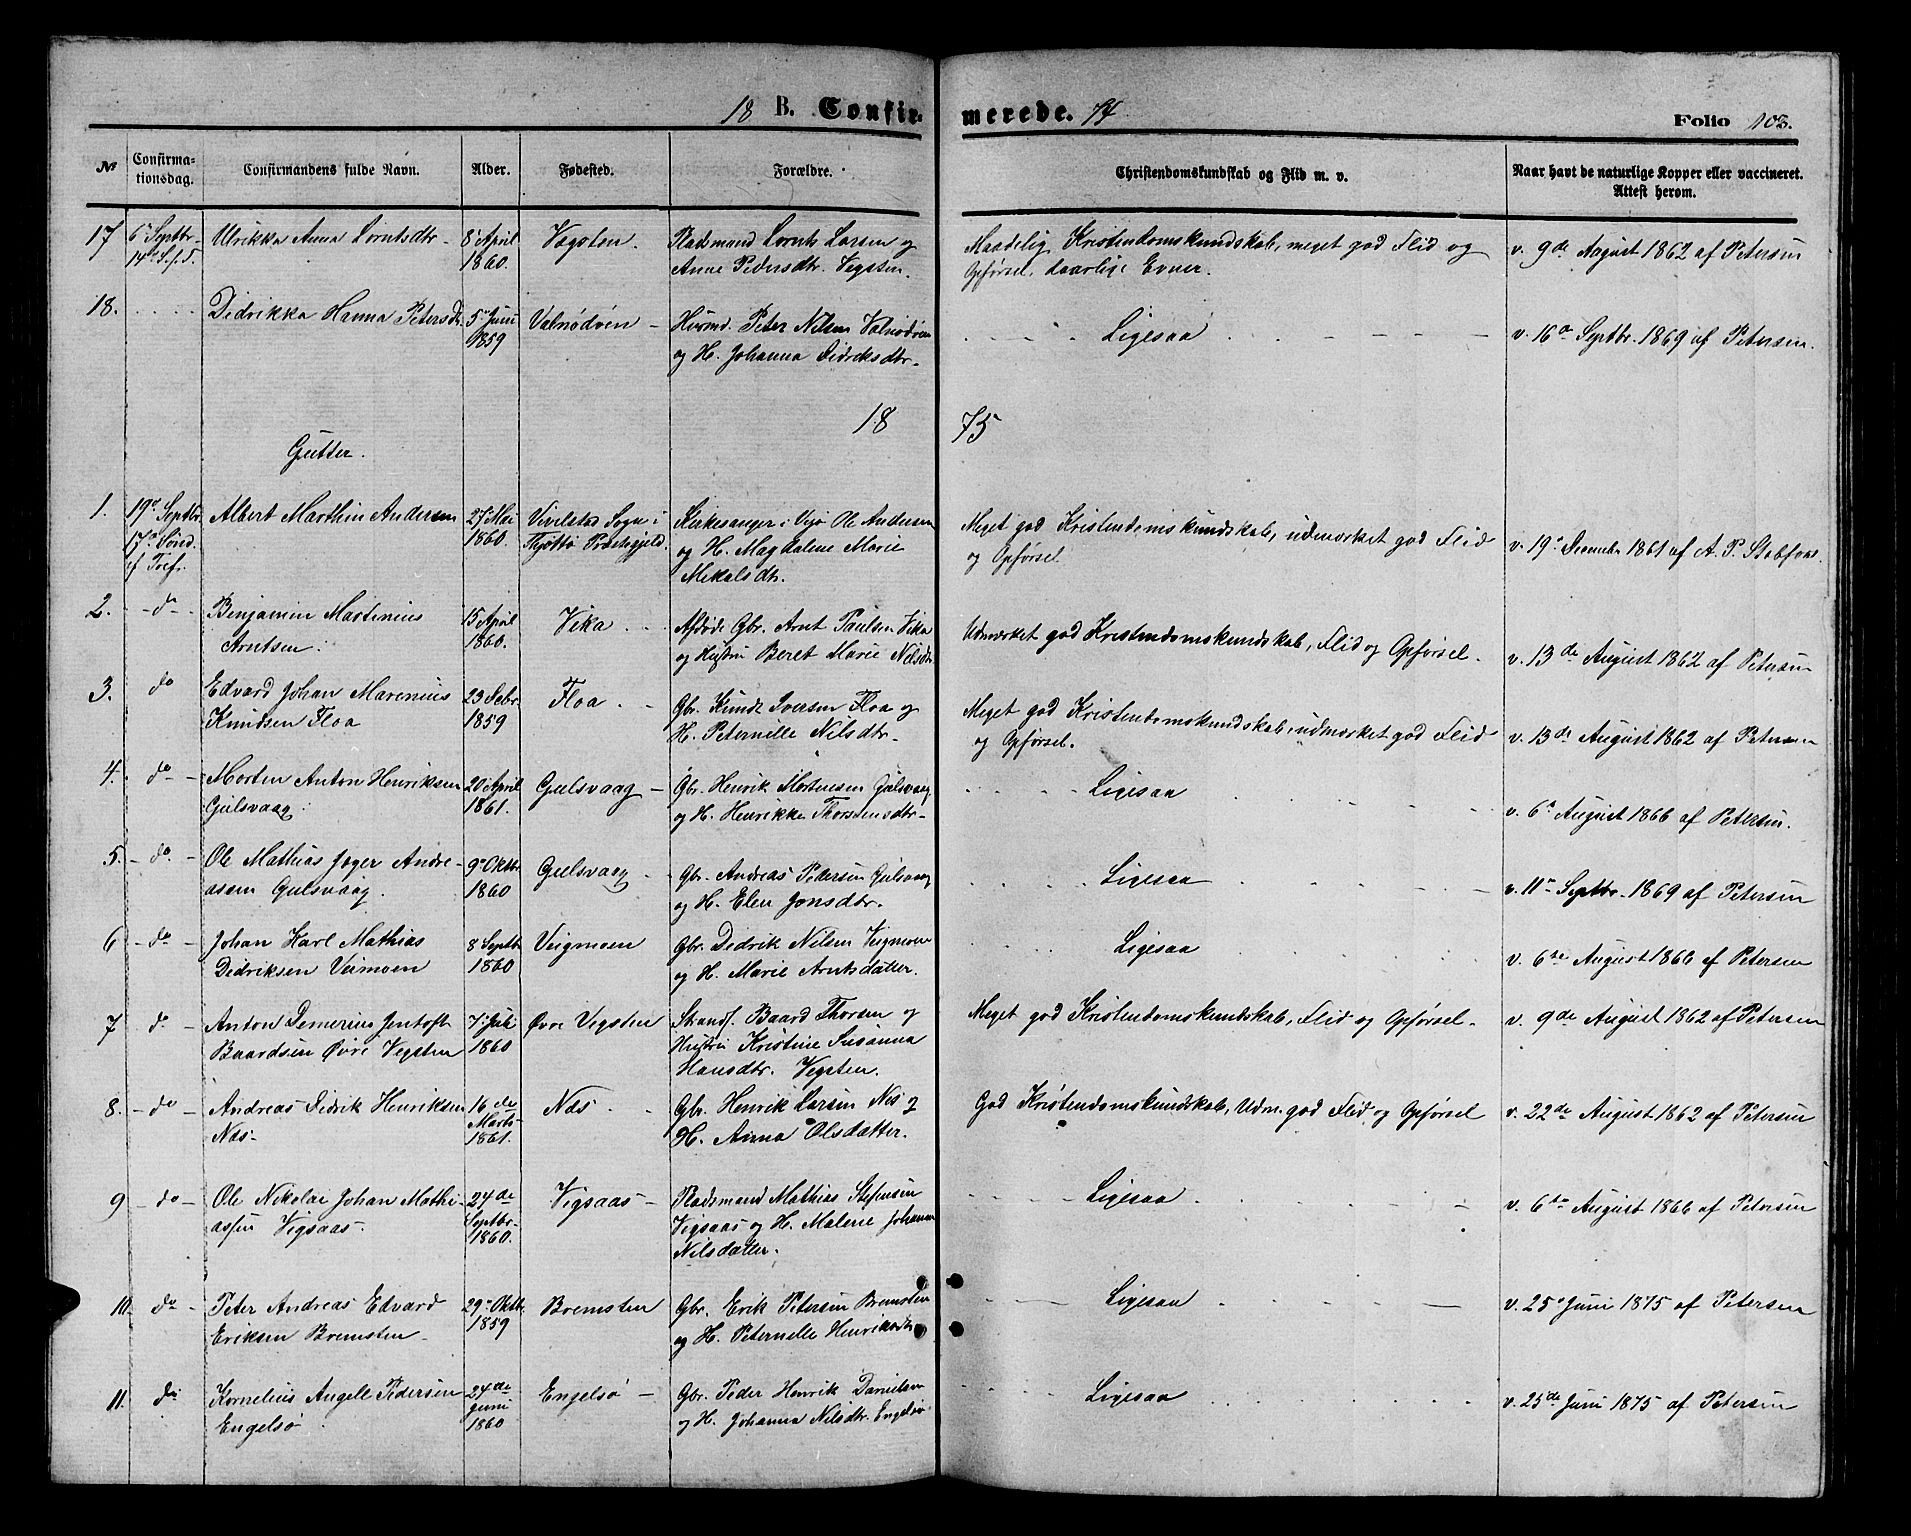 18 B. Confirmerede. 74. Folio 103.
No Confirmationsdag. Confirmandens fulde Navn. Alder. Fødested. Forældre. Christendomskundskab og Flid m. v. Naar havt de naturlige Kopper eller vaccineret. Attest herom.
17 6te Septbr. Ulrikka Anna Lorntsdtr. 8de April Vegsten. Pladsmand Lornts Larsen og Maadelig Kristendomskundskab, meget god Flid og v. 9de August 1862 af Petersen
14de S. f. T. 1860. Anne Pedersdtr. Vegsten. Opførsel, daarlige Evner.
18. Didrikka Hanna Petersdtr. 5te Juni Valnødøen Huusmd. Peter Nilsen Valnødøen Ligesaa v. 16de Septbr. 1869 af Petersen.
1859 og H. Johanna Didriksdtr.
18 75
Gutter.
1. 19de Septbr. Albert Marthin Andersen 27 Mai Vivelstad Sogn i Kirkesanger i Vejø Ole Andersen Meget god Kristendomskundskab, udmærket god Flid v. 19de December 1861 af A. P.
17de Sønd. 1860. Thjøttø Præstegjeld. og H. Magdalene Marie og Opførsel
f. Tref. Mekalsdtr.
2. do Benjamin Martinius 15 April Vika Afdøde Gbr. Arnt Paulsen Vika Udmærket god Kristendomskundskab, Flid og Opførsel. v. 13de August 1862 af Petersen
Arntsen. 1860. og Hustru Beret Marie Nilsdtr.
3. do Edvard Johan Marenius 23 Febr. Floa Gbr. Knudt Iversen Floa og Meget god Kristendomskundskab, udmærket god Flid v. 13de August 1862 af Petersen
Knudsen Floa 1859 H. Peternille Nilsdtr. og Opførsel.
4. do Morten Anton Henriksen 20 April Gulsvaag Gbr. Henrik Mortensen Gulsvaag Ligesaa v. 6te August 1866 af Petersen.
Gulsvaag. 1861. og H. Henrikke Thorstensdtr.
5. do. Ole Mathias Jæger Andre- 9de Oktbr. Gulsvaag Gbr. Andreas Pedersen Gulsvaag Ligesaa v. 11te Septbr. 1869 af Petersen
assen Gulsvaag. 1860 og H. Elen Jonsdtr.
6 do Johan Karl Mathias 8 Septbr. Veigmoen Gbr. Didrik Nilsen Veigmoen Ligesaa v. 6te August 1866 af Petersen
Didriksen Veimoen 1860 og H. Marie Arntsdatter.
7 do Anton Demerius Jentoft 7de Juli Øvre Vegsten Strands. Baard Thorsen og Meget god Kristendomskundskab, Flid og Opførsel. v. 9de August 1862 af Petersen
Baardsen Øvre Vegsten 1860 Hustru Kristine Susanna
Hansdtr. Vegsten.
8. do Andreas Didrik Henriksen 16de Næs Gbr. Henrik Larsen Næs og God Kristendomskundskab, Udm. god Flid og Opførsel v. 22de August 1862 af Petersen
Næs. Marts 1861. H. Anna Olsdatter.
9 do Ole Nikolai Johan Mathi- 24de Vegsaas Pladsmand Mathias Stefensen Ligesaa v. 6te August 1866 af Petersen
assen Vegsaas. Septbr. 1860. Vegsaas og H. Malene Johanna
Nilsdatter.
10. do Peter Andreas Edvard 29de Oktbr. Bremsten Gbr. Erik Petersen Bremsten Ligesaa v. 25de Juni 1875 af Petersen
Eriksen Bremsten 1859 og H. Peternelle Henriksdtr.
11. do Kornelius Angell Pedersen 24de Engelsø Gbr. Peder Henrik Danielsen Ligesaa v. 25de Juni 1875 af Petersen
Engelsø Juni 1860 og H. Johanna Nilsdtr. Engelsø